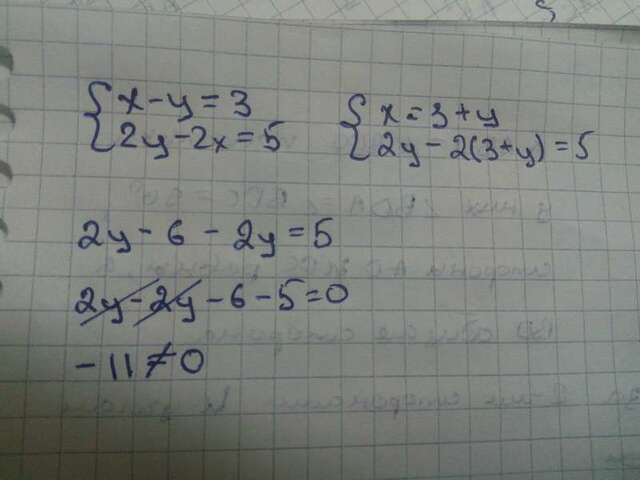 { x - y = 3
{ 2y - 2x = 5
{ x = 3 + y
{ 2y - 2(3+y) = 5
2y - 6 - 2y = 5
2y - 2y - 6 - 5 = 0
- 11 ≠ 0